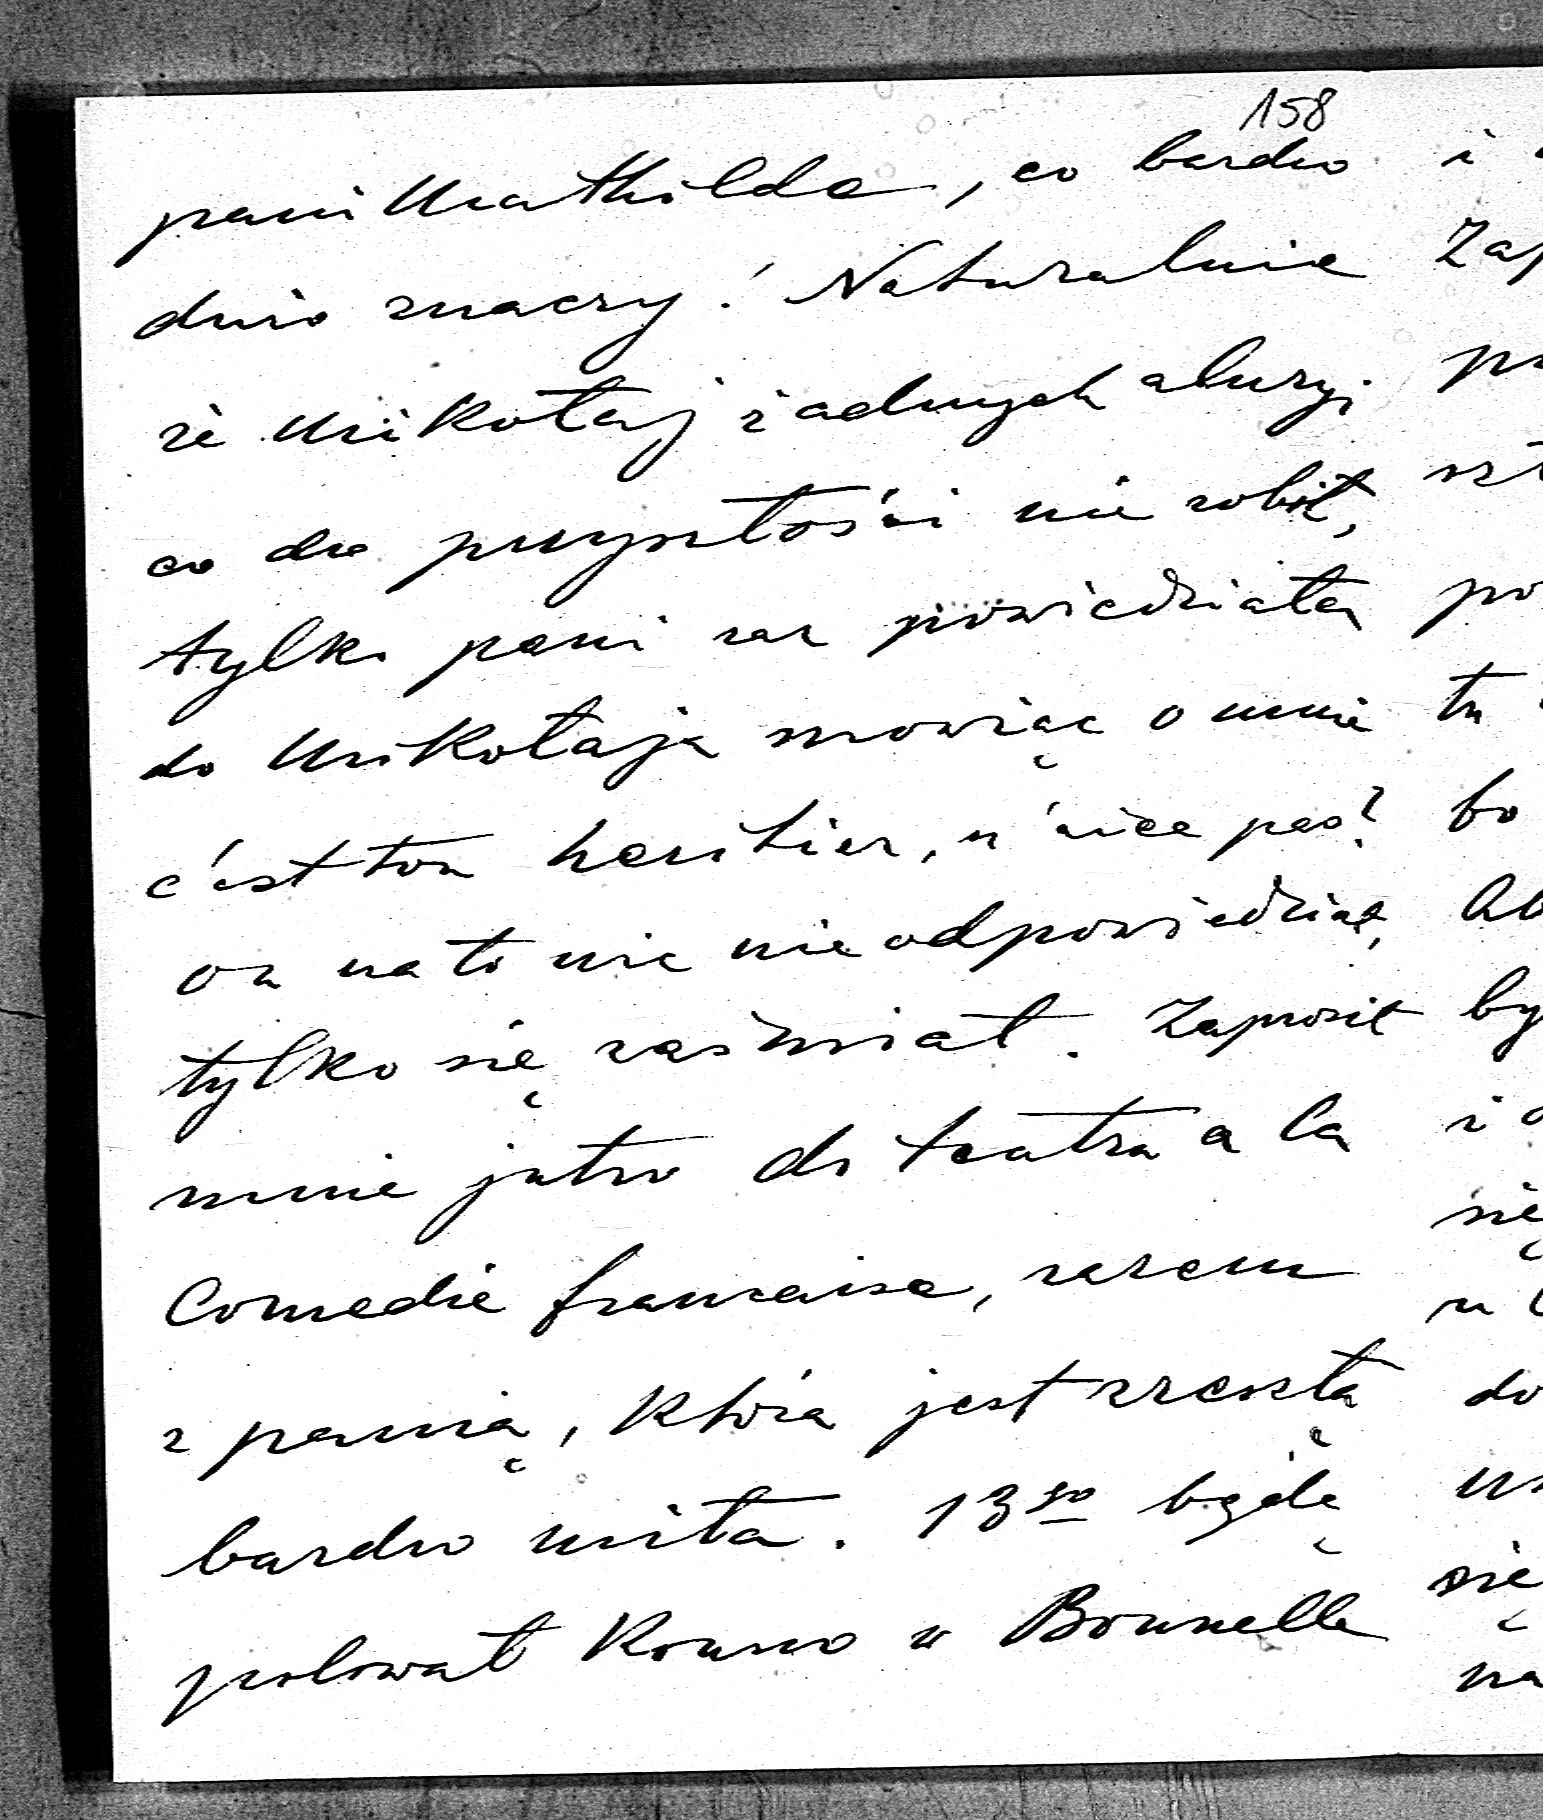 158
pani Mathilde, co bardzo
dużo znaczy! Naturalnie
że Mikołaj żadnych aluzyj
co do przyszłości nie robił,
tylko pani raz powiedziała
do Mikołaja mowiąc o mnie
c'est ton heritier, n'
on na to nic nie odpowiedział,
tylko się zaśmiał. Zaprosił
mnie jutro do teatru a la
Comedie francaise, razem
z panią, która jest zresztą
bardzo miła. 13go będę
polował konno u Bonnelle
i
Zap
po
tu
bo
by
i
się
do
się
na